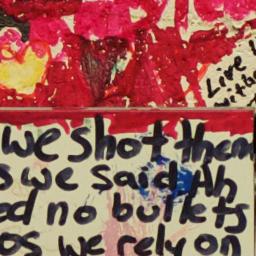 Live
with
we shot them
s we said Ah
ed no bullets
os we rely on